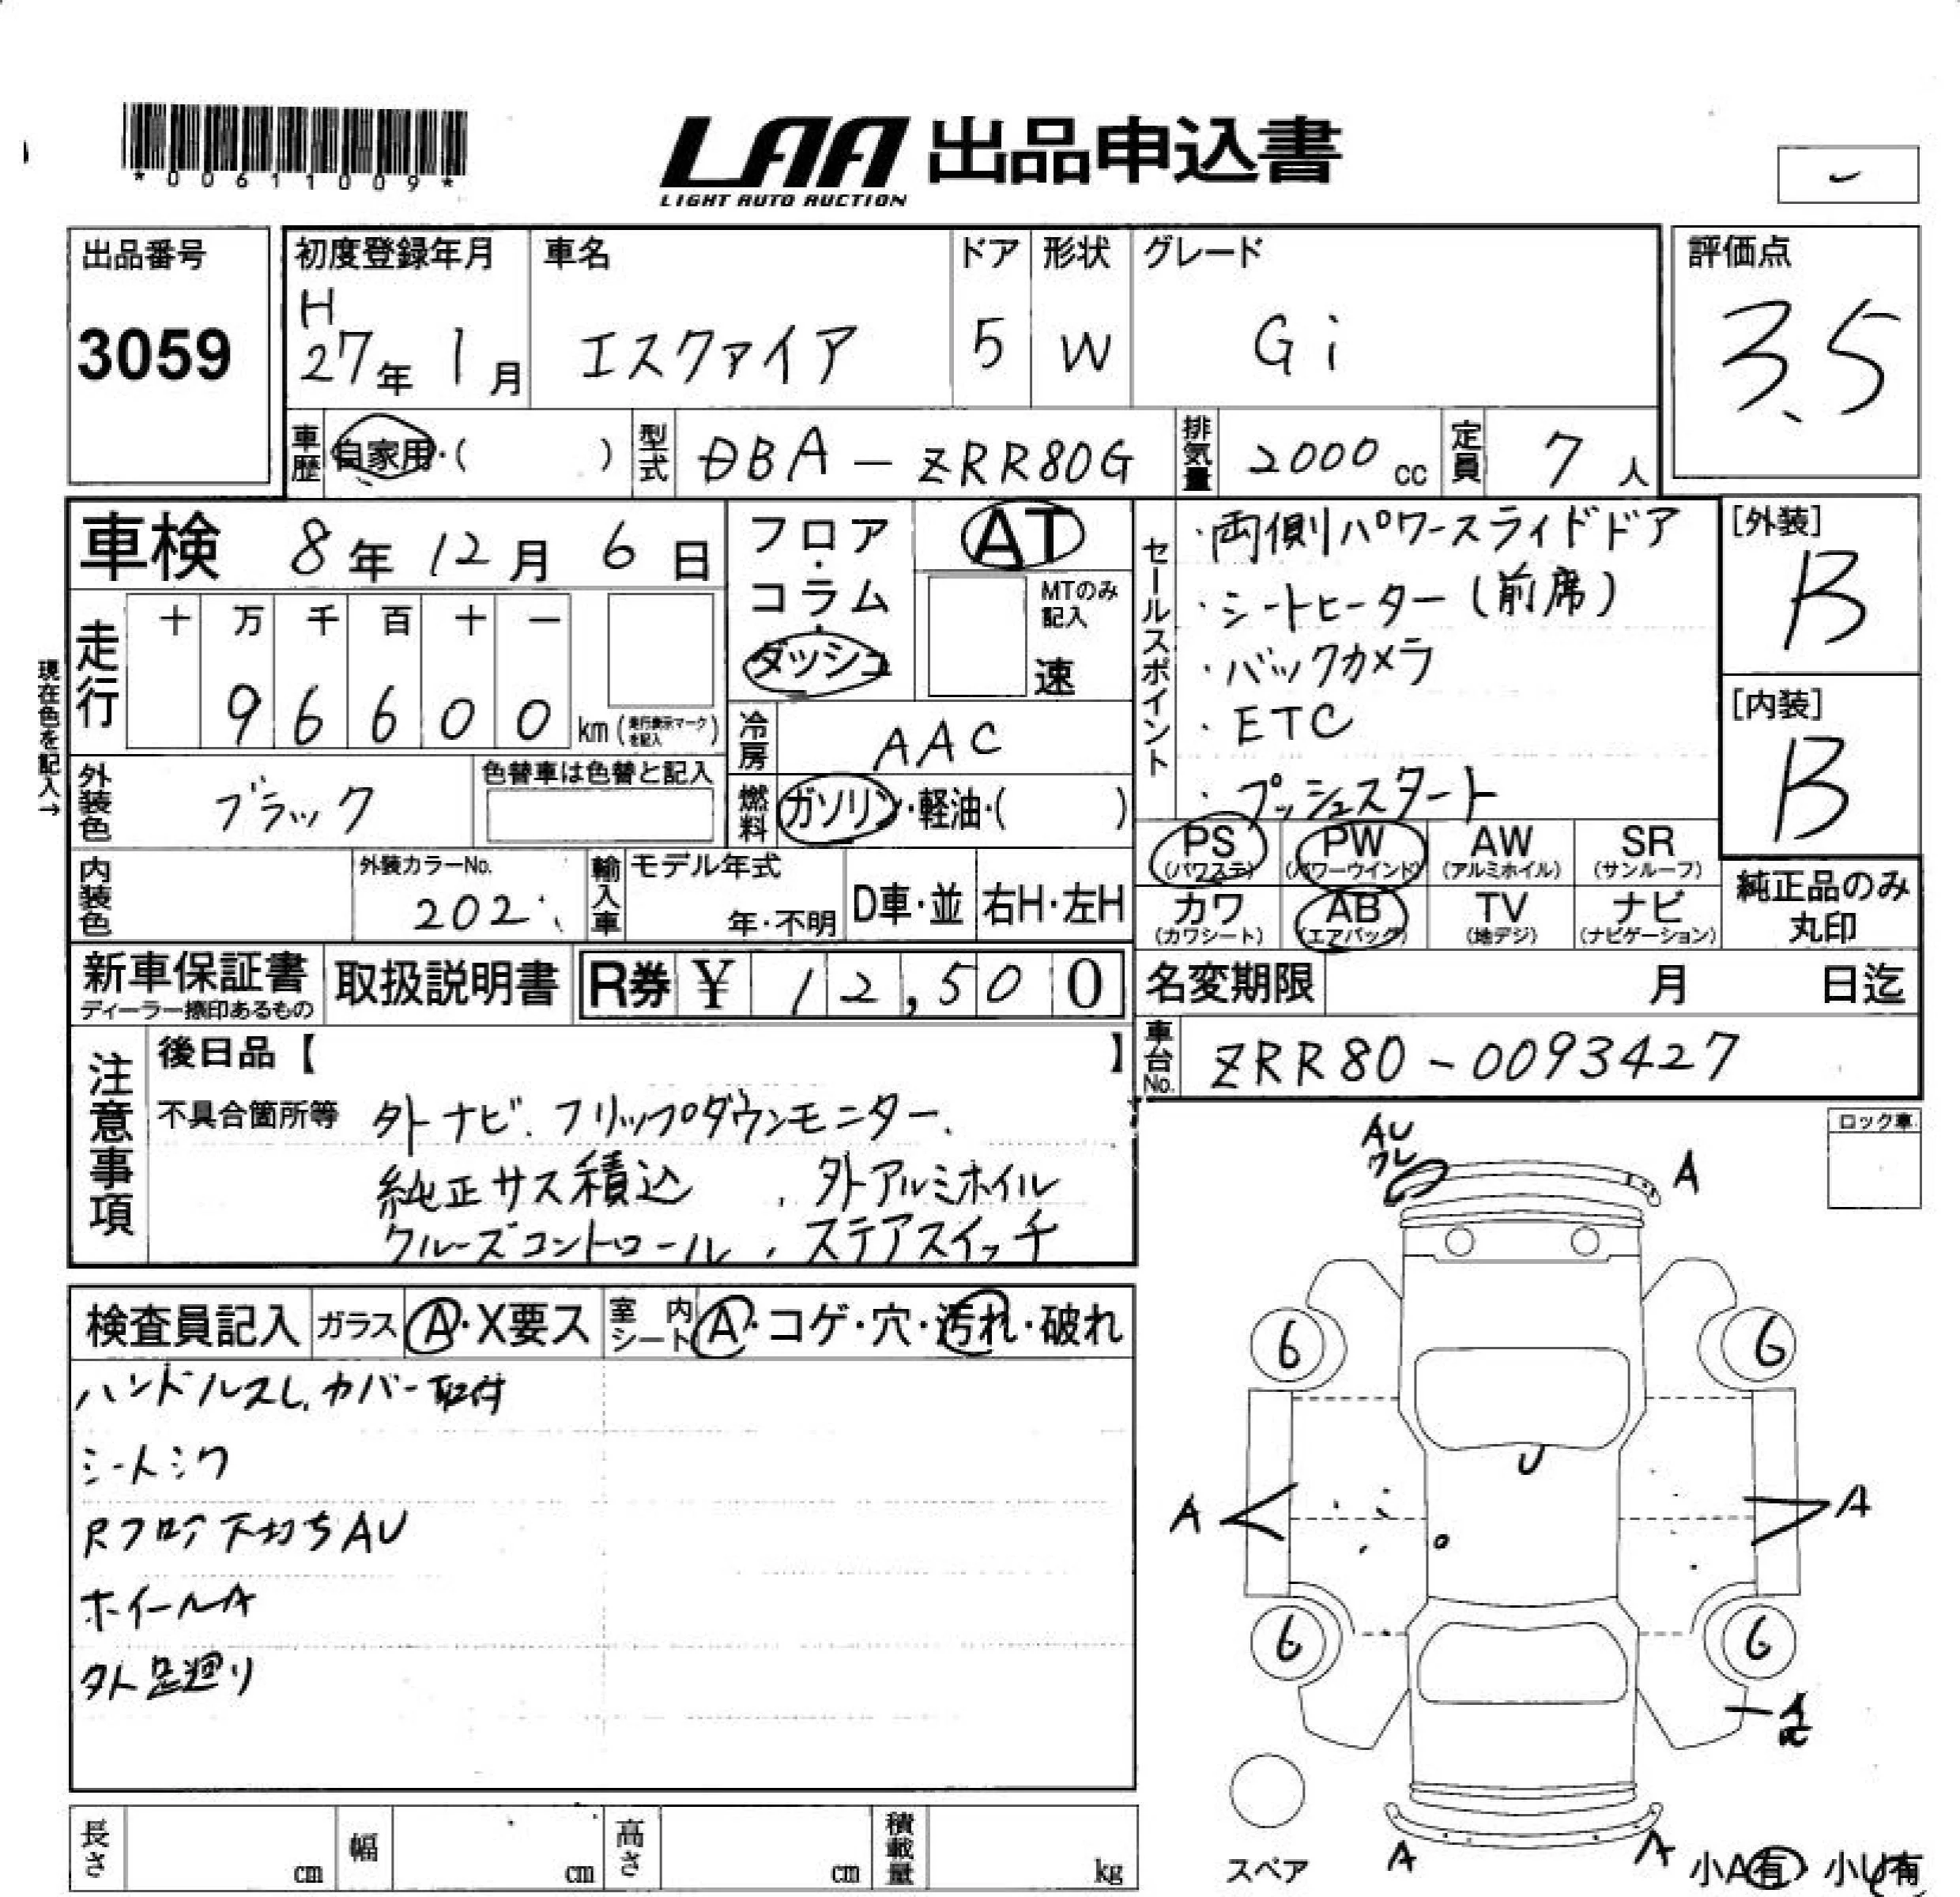 *00611009*
LAA 出品申込書
LIGHT AUTO AUCTION
出品番号
3059
初度登録年月
H
27年 1月
車名
エスクァイア
ドア
5
形状
W
グレード
Gi
評価点
3.5
車歴 自家用・( )
型式 DBA-ZRR80G
排気量 2000cc
定員 7人
車検 8年 12月 6日
走行
十 万 千 百 十 一
9 6 6 0 0 km (走行表示マークを記入)
現在色を記入→
フロア・
コラム・
ダッシュ
AT
MTのみ
記入
速
冷房 AAC
燃料 ガソリン・軽油・( )
外装色 ブラック
色替車は色替と記入
内装色
外装カラーNo.
202
輸入車
モデル年式
年・不明
D車・並
右H・左H
セールスポイント
・両側パワースライドドア
・シートヒーター(前席)
・バックカメラ
・ETC
・プッシュスタート
[外装]
B
[内装]
B
PS PW AW SR
(パワステ) (パワーウインド) (アルミホイル) (サンルーフ)
カワ AB TV ナビ
(カワシート) (エアバッグ) (地デジ) (ナビゲーション)
純正品のみ
丸印
新車保証書
ディーラー捺印あるもの
取扱説明書
R券 ¥ 12,500
名変期限 月 日迄
車台No. ZRR80-0093427
注意事項
後日品【 】
不具合箇所等 外ナビ、フリップダウンモニター、
純正サス積込 、外アルミホイル
クルーズコントロール、ステアスイッチ
ロック車
検査員記入
ガラス A・X要ス
室内シート A・コゲ・穴・汚れ・破れ
ハンドルスレ、カバー取付
シートシワ
Rフロア下打ちAU
ホイールA
外足廻り
AU
ワレ
A
6 6
U
A A
6 6
A A
スペア
小A有 小U有
長さ cm
幅 cm
高さ cm
積載量 kg